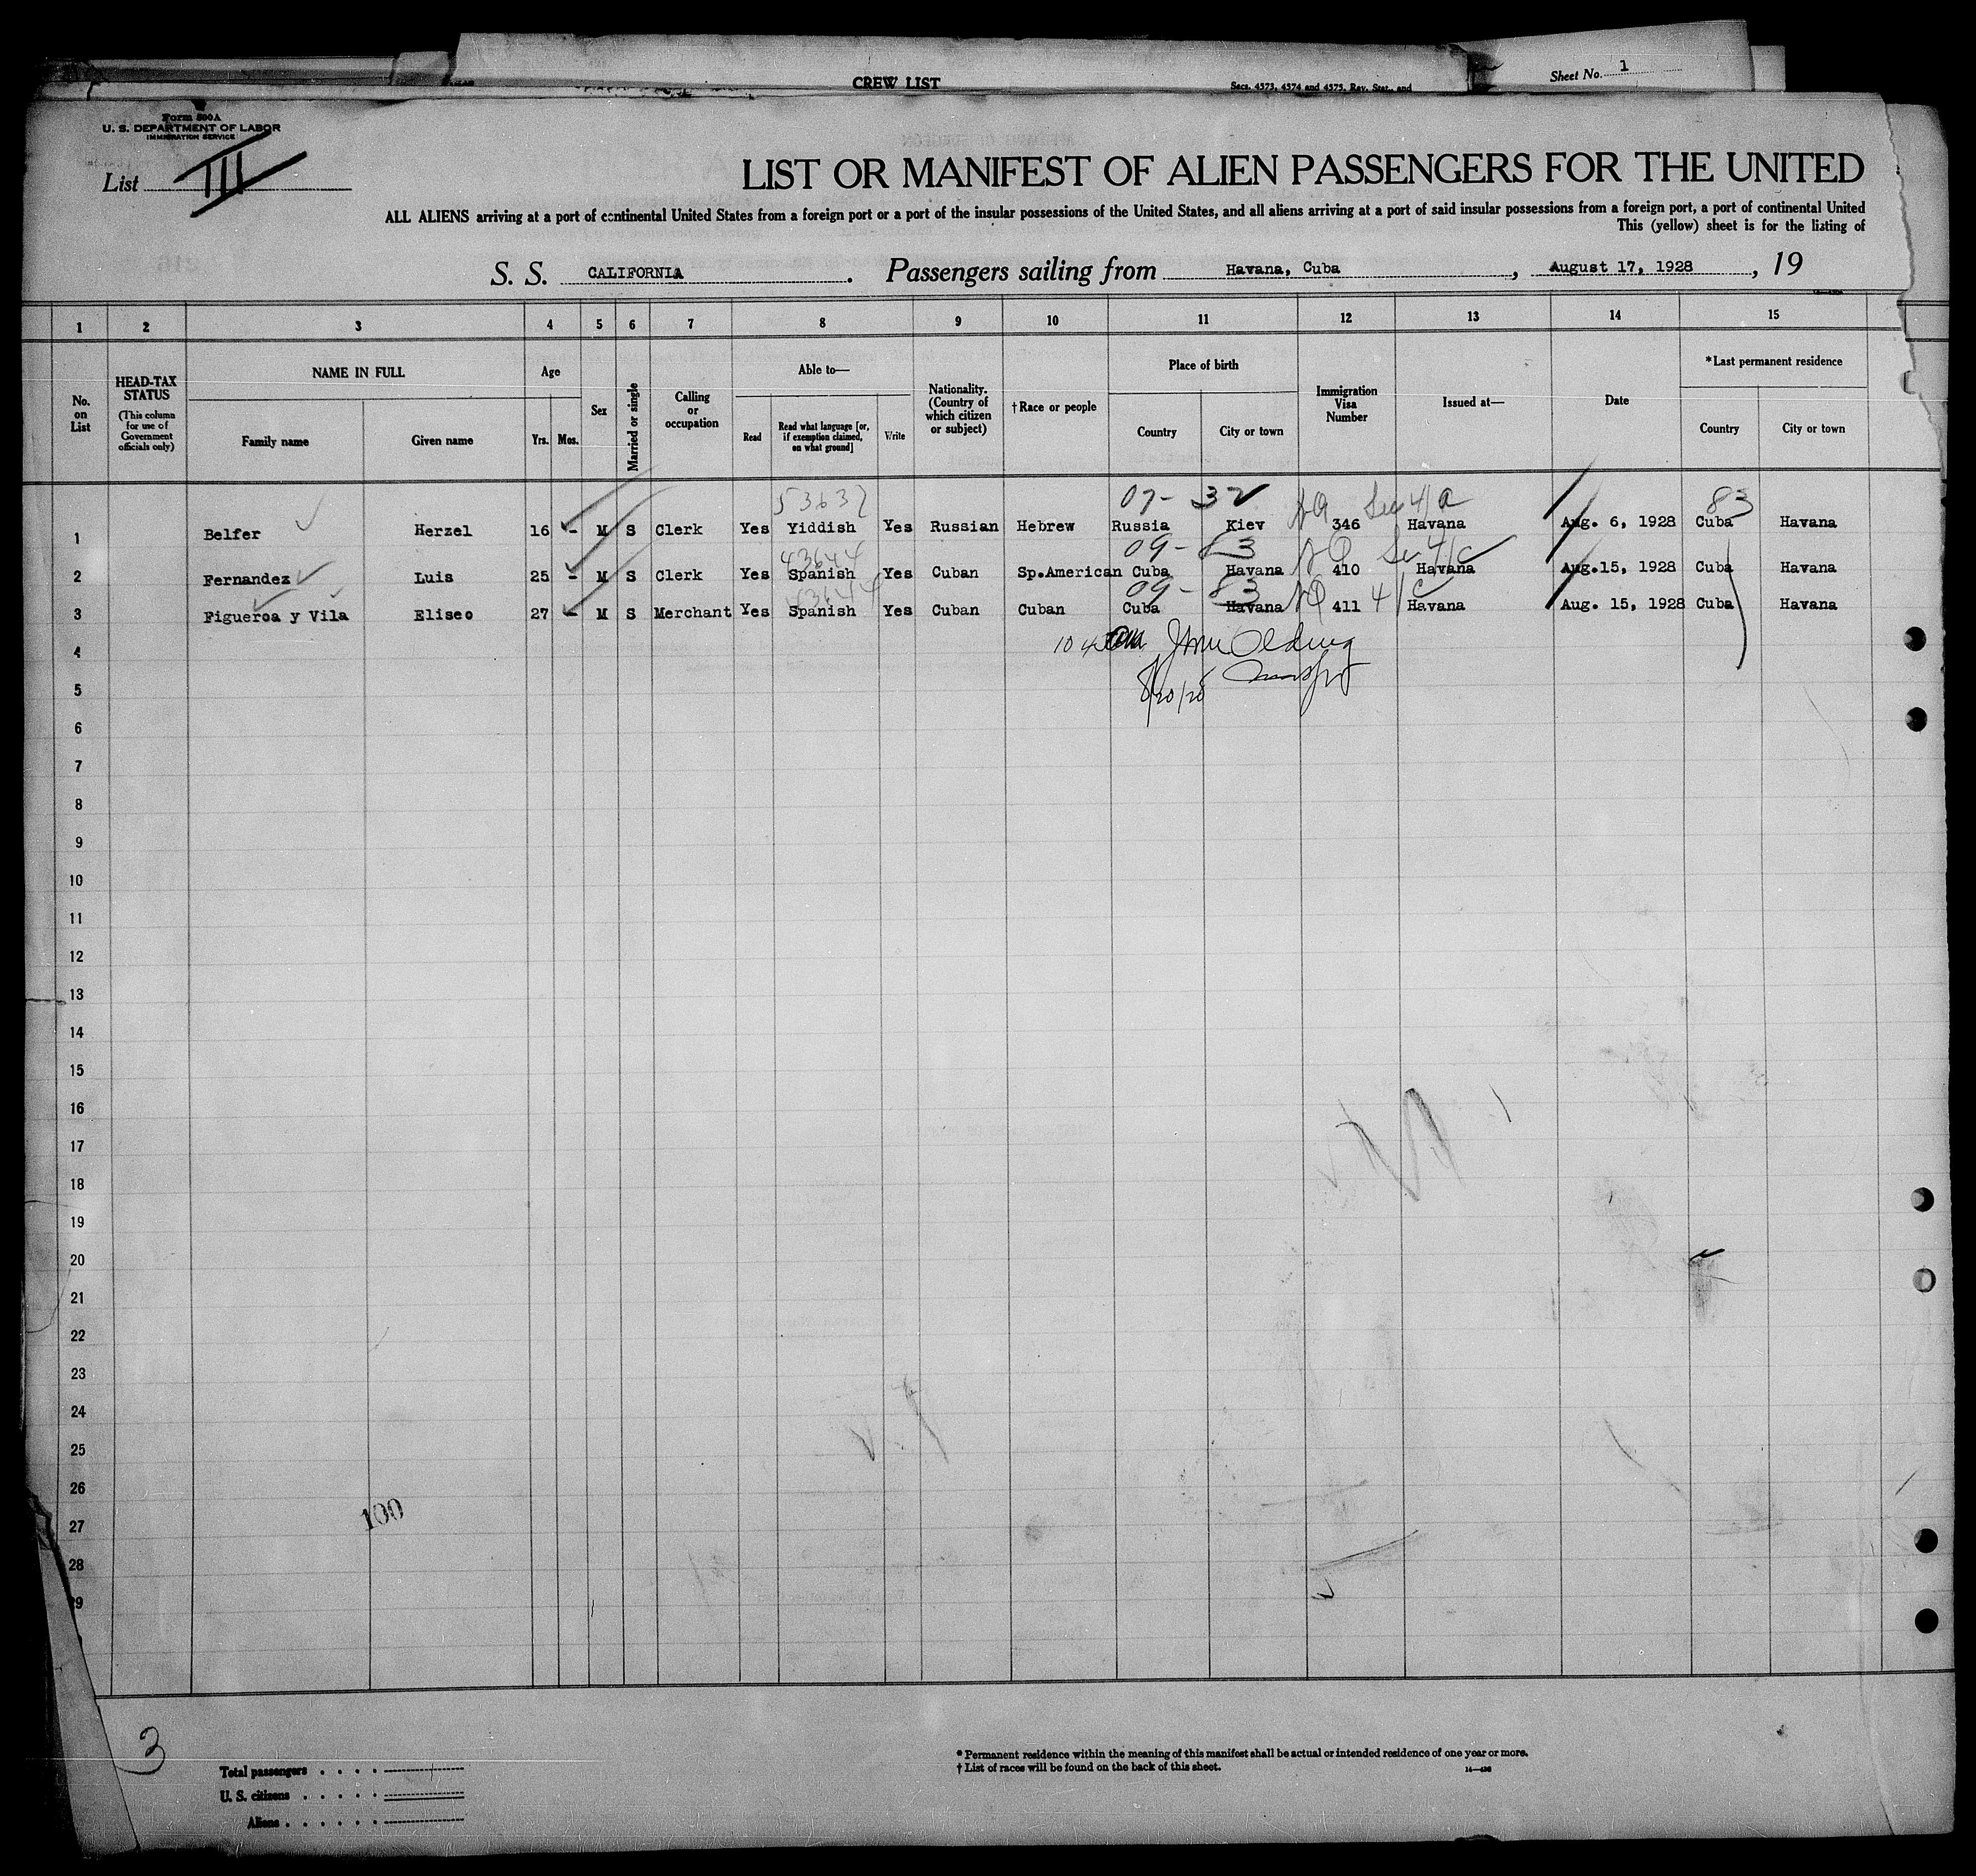 CREW LIST
Secs. 4573, 4574 and 4575, Rev. Stat., and
Sheet No. 1
Form 500A
U. S. DEPARTMENT OF LABOR
IMMIGRATION SERVICE
List III
LIST OR MANIFEST OF ALIEN PASSENGERS FOR THE UNITED
ALL ALIENS arriving at a port of continental United States from a foreign port or a port of the insular possessions of the United States, and all aliens arriving at a port of said insular possessions from a foreign port, a port of continental United
This (yellow) sheet is for the listing of
S. S. CALIFORNIA. Passengers sailing from Havana, Cuba, August 17, 1928, 19
1 2 3 4 5 6 7 8 9 10 11 12 13 14 15
No. on List
HEAD-TAX STATUS (This column for use of Government officials only)
NAME IN FULL
Family name Given name
Age
Yrs. Mos.
Sex
Married or single
Calling or occupation
Able to—
Read
Read what language [or, if exemption claimed, on what ground]
Write
Nationality. (Country of which citizen or subject)
† Race or people
Place of birth
Country City or town
Immigration Visa Number
Issued at—
Date
*Last permanent residence
Country City or town
53632 07- 32 NQ Sec 4/a 83
1 Belfer Herzel 16 - M S Clerk Yes Yiddish Yes Russian Hebrew Russia Kiev 346 Havana Aug. 6, 1928 Cuba Havana
43644 09- 83 NQ Sec 4/c
2 Fernandez Luis 25 - M S Clerk Yes Spanish Yes Cuban Sp.American Cuba Havana 410 Havana Aug.15, 1928 Cuba Havana
43644 09- 83 NQ 4/c
3 Figueroa y Vila Eliseo 27 - M S Merchant Yes Spanish Yes Cuban Cuban Cuba Havana 411 Havana Aug. 15, 1928 Cuba Havana
4
5 8/20/28
6
7
8
9
10
11
12
13
14
15
16
17
18
19
20
21
22
23
24
25
26
100
27
28
29
3
Total passengers
U. S. citizens
Aliens
* Permanent residence within the meaning of this manifest shall be actual or intended residence of one year or more.
† List of races will be found on the back of this sheet.